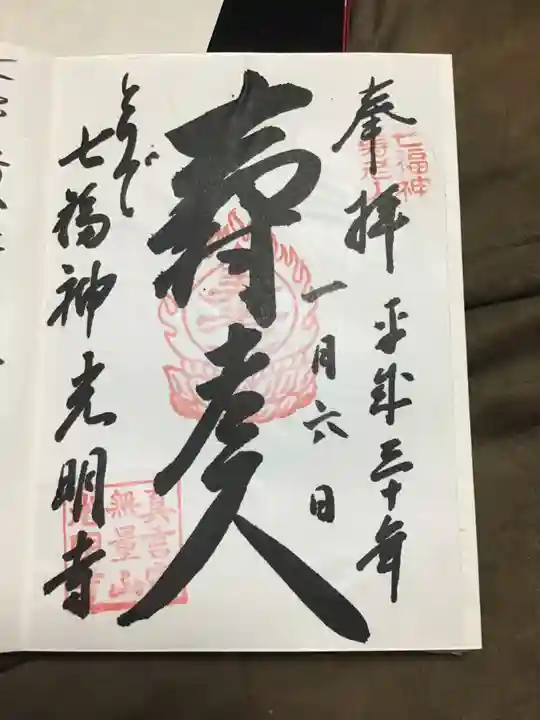 奉拝
平成三十年
一月六日
寿老人
七福神光明寺
七福神
寿老人
真言宗
無量山
光明寺